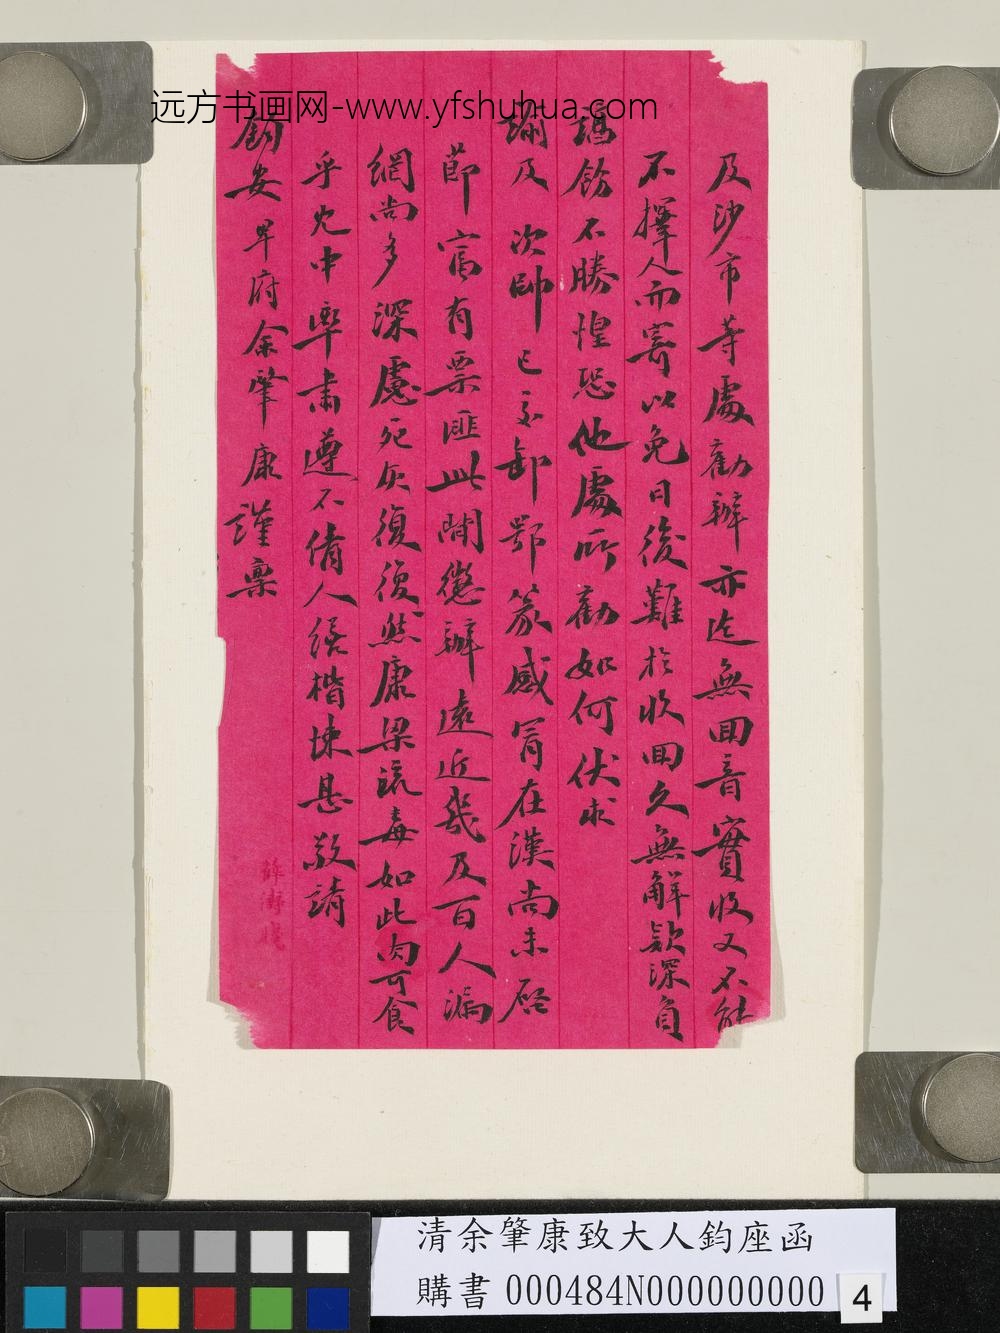 远方书画网-www.yfshuhua.com
及沙市等處勸辦亦迄無回音實收又不能
不擇人而寄以免日後難於收回久無解款深負
飭不勝惶恐他處所勸如何伏求
及次帥已交卸鄂篆感冒在漢尚未啓
節富有票匪此間懲辦遠近幾及百人漏
網尚多深慮死灰復復然康梁流毒如此肉可食
乎忙中率肅遵不倩人繕楷悚息敬請
鈞安卑府余肇康謹稟
薛濤牋
清余肇康致大人鈞座函
購書000484N000000000
4